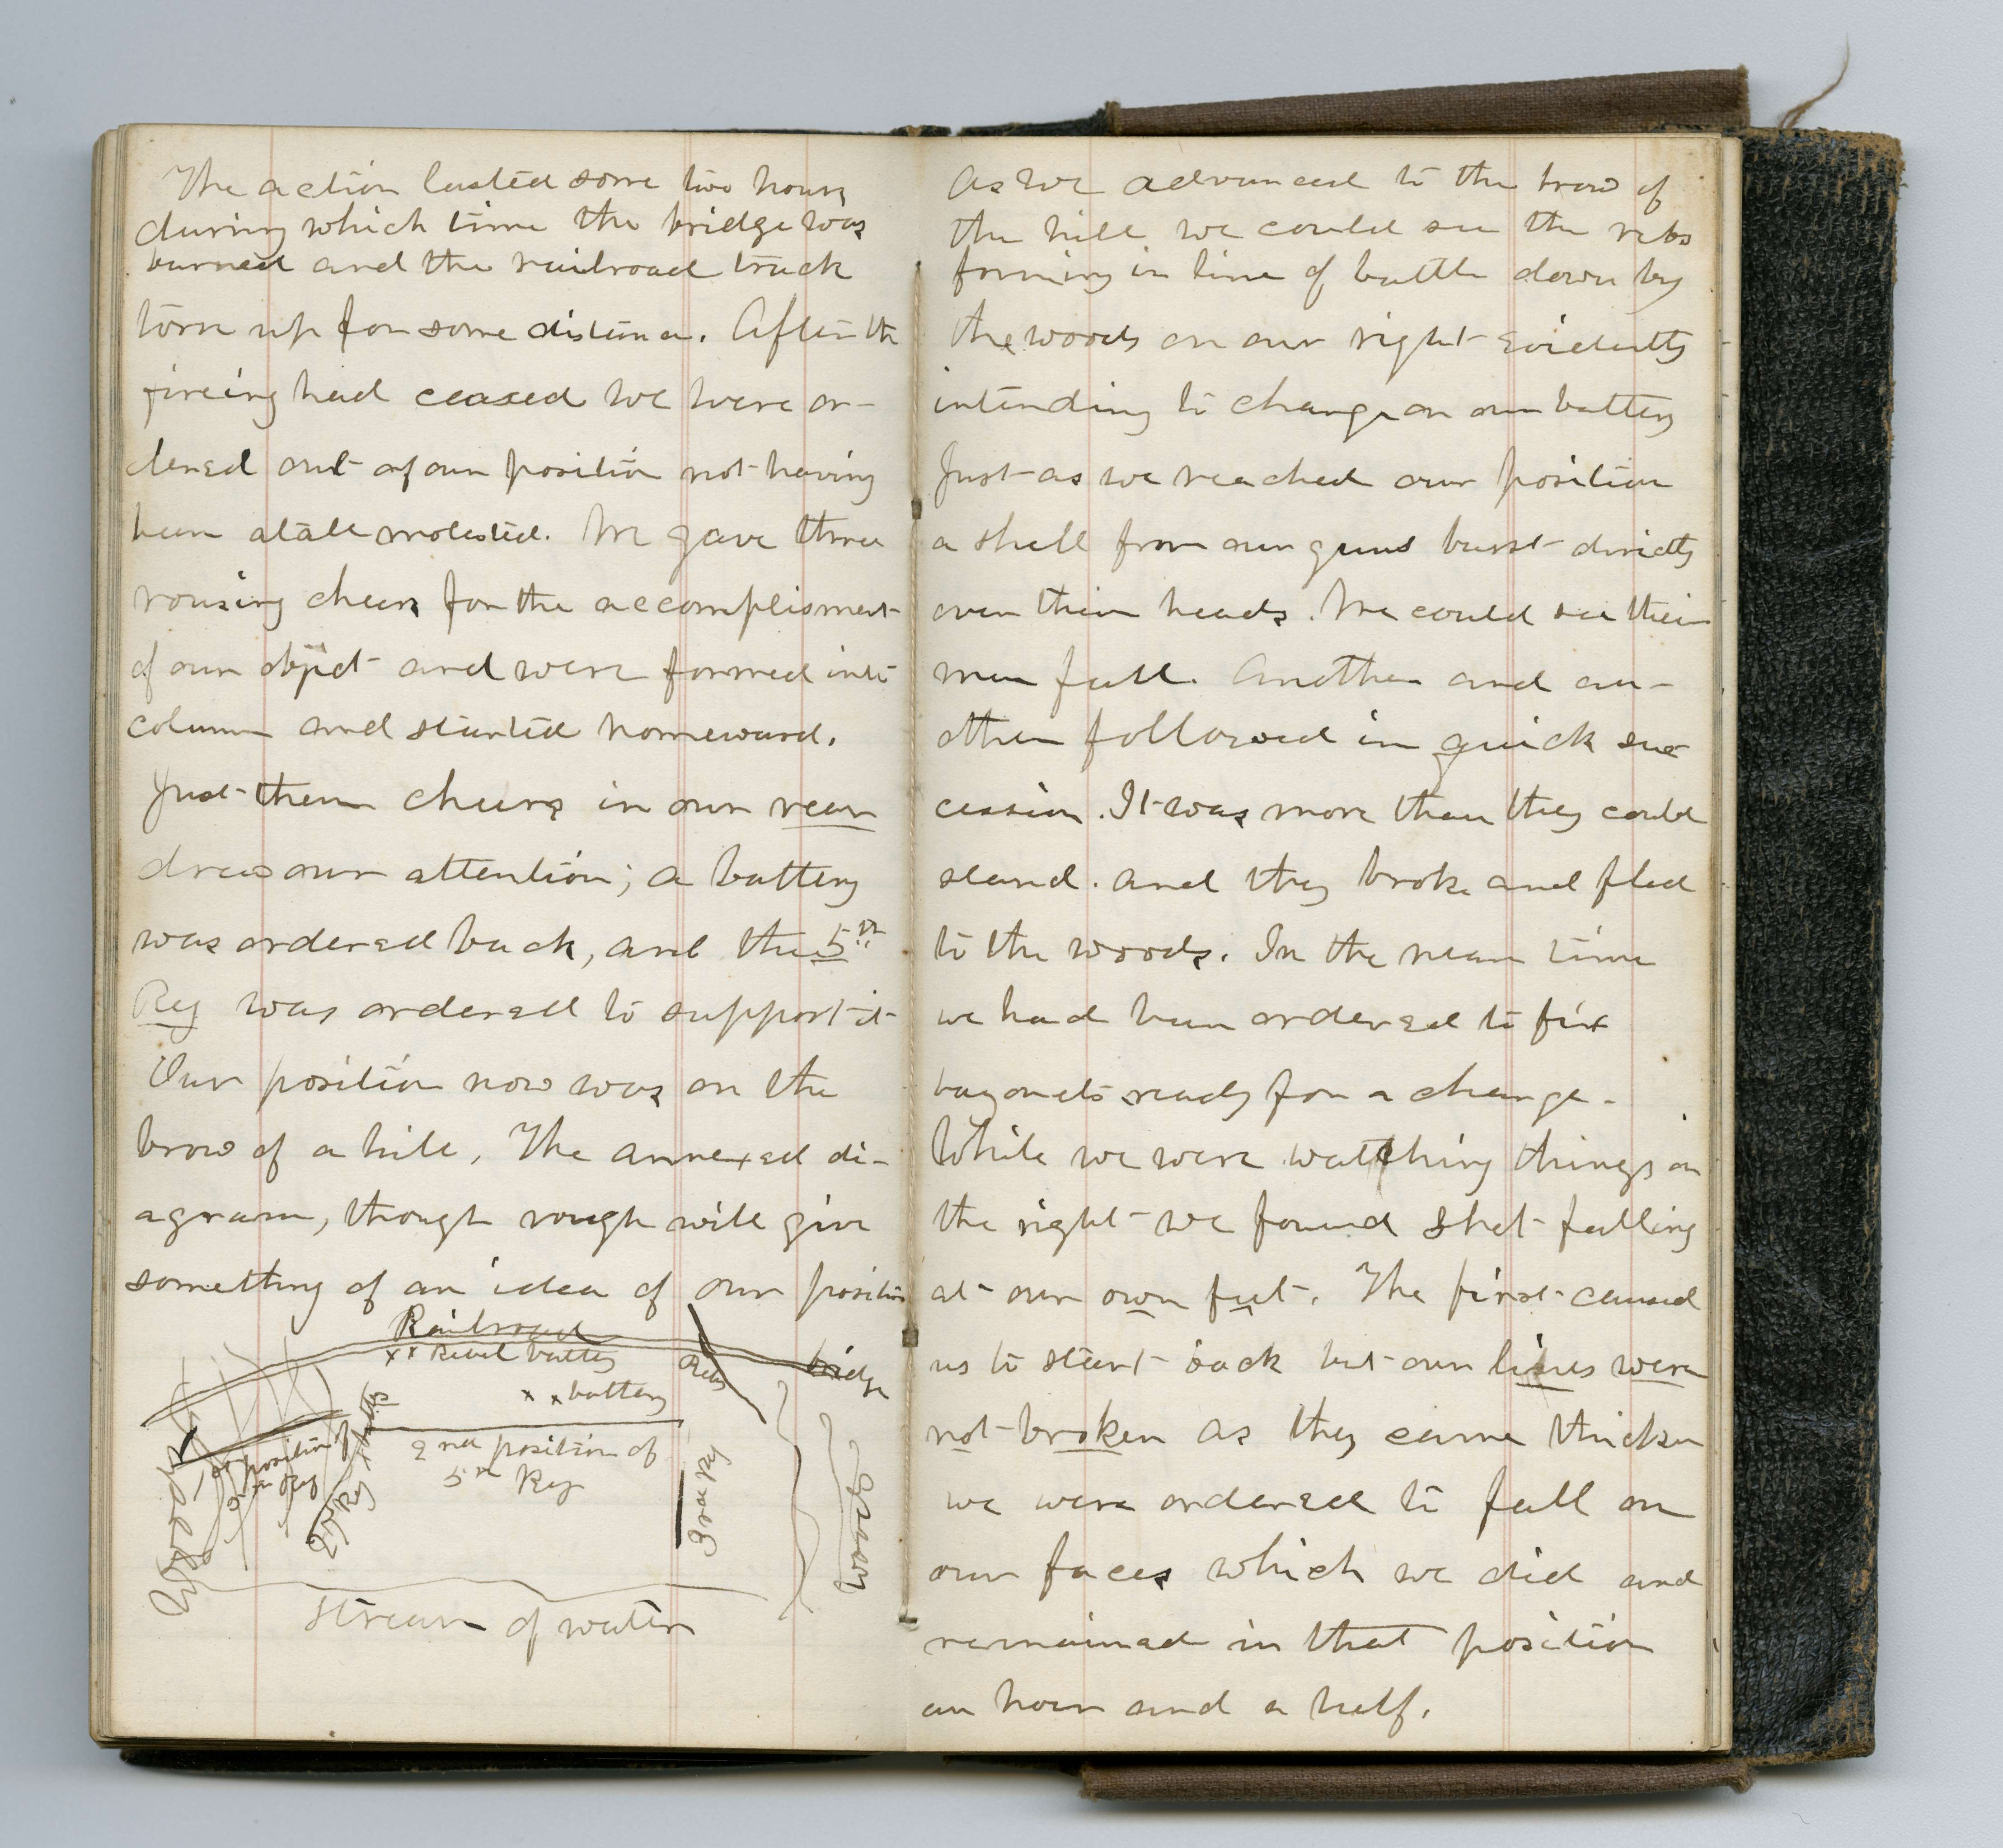 The action lasted some two hours
during which time the bridge was
burned and the railroad track
torn up for some distance. After the
fireing had ceased we were or-
dered out of our position not having
been atall molested. We gave three
rousing cheers for the accomplisment
of our objct and were formed into
column and started homeward.
Just then cheers in our rear
drew our attention; a battery
was ordered back, and the 5th
Reg was ordered to support it
Our position now was on the
brow of a hill. The annexed di-
agram, though rough will give
something of an idea of our position
Railroad
xx Rebel battery
Rebs
bridge
x x battery
battery
1st position of
5th Reg
2nd position of
5th Reg
27th Reg
3rd Reg
Woods
Woods
Stream of water
As we advanced to the brow of
the hill we could see the rebs
forming in line of battle down by
the woods on our right evidently
intending to charge on our battery
Just as we reached our position
a shell from our guns burst directly
over their heads. We could see their
men fall. Another and an-
other followed in quick suc-
cession. It was more than they could
stand. and they broke and fled
to the woods. In the mean time
we had been ordered to fix
bayonets ready for a charge.
While we were watching things on
the right we found shot falling
at our own feet. The first caused
us to start back but our lines were
not broken As they came thicker
we were ordered to fall on
our faces which we did and
remained in that position
an hour and a half.